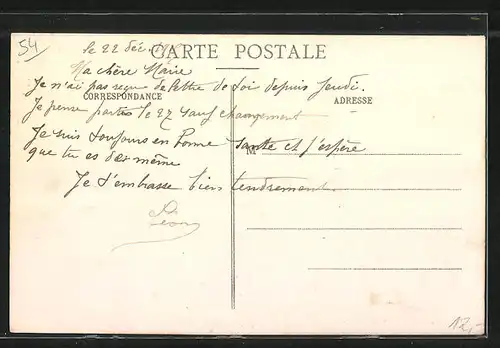 54
le 22 déc
CARTE POSTALE
Ma chère Marie
Je n'ai pas reçu de lettre de toi depuis Jeudi.
CORRESPONDANCE
ADRESSE
Je pense partir le 27 sauf changement
Je suis toujours en bonne santé et j'espère
M
que tu es de même
Je t'embrasse bien tendrement.
Léon
12,-